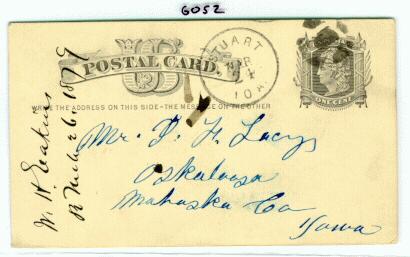 G052
US
POSTAL CARD.
STUART
APR
4
IOA
ONE CENT
WRITE THE ADDRESS ON THIS SIDE-THE MESSAGE ON THE OTHER
Mr. D. F. Lacy
Oskaloosa
Mahaska Co
Iowa
W. H.
1879